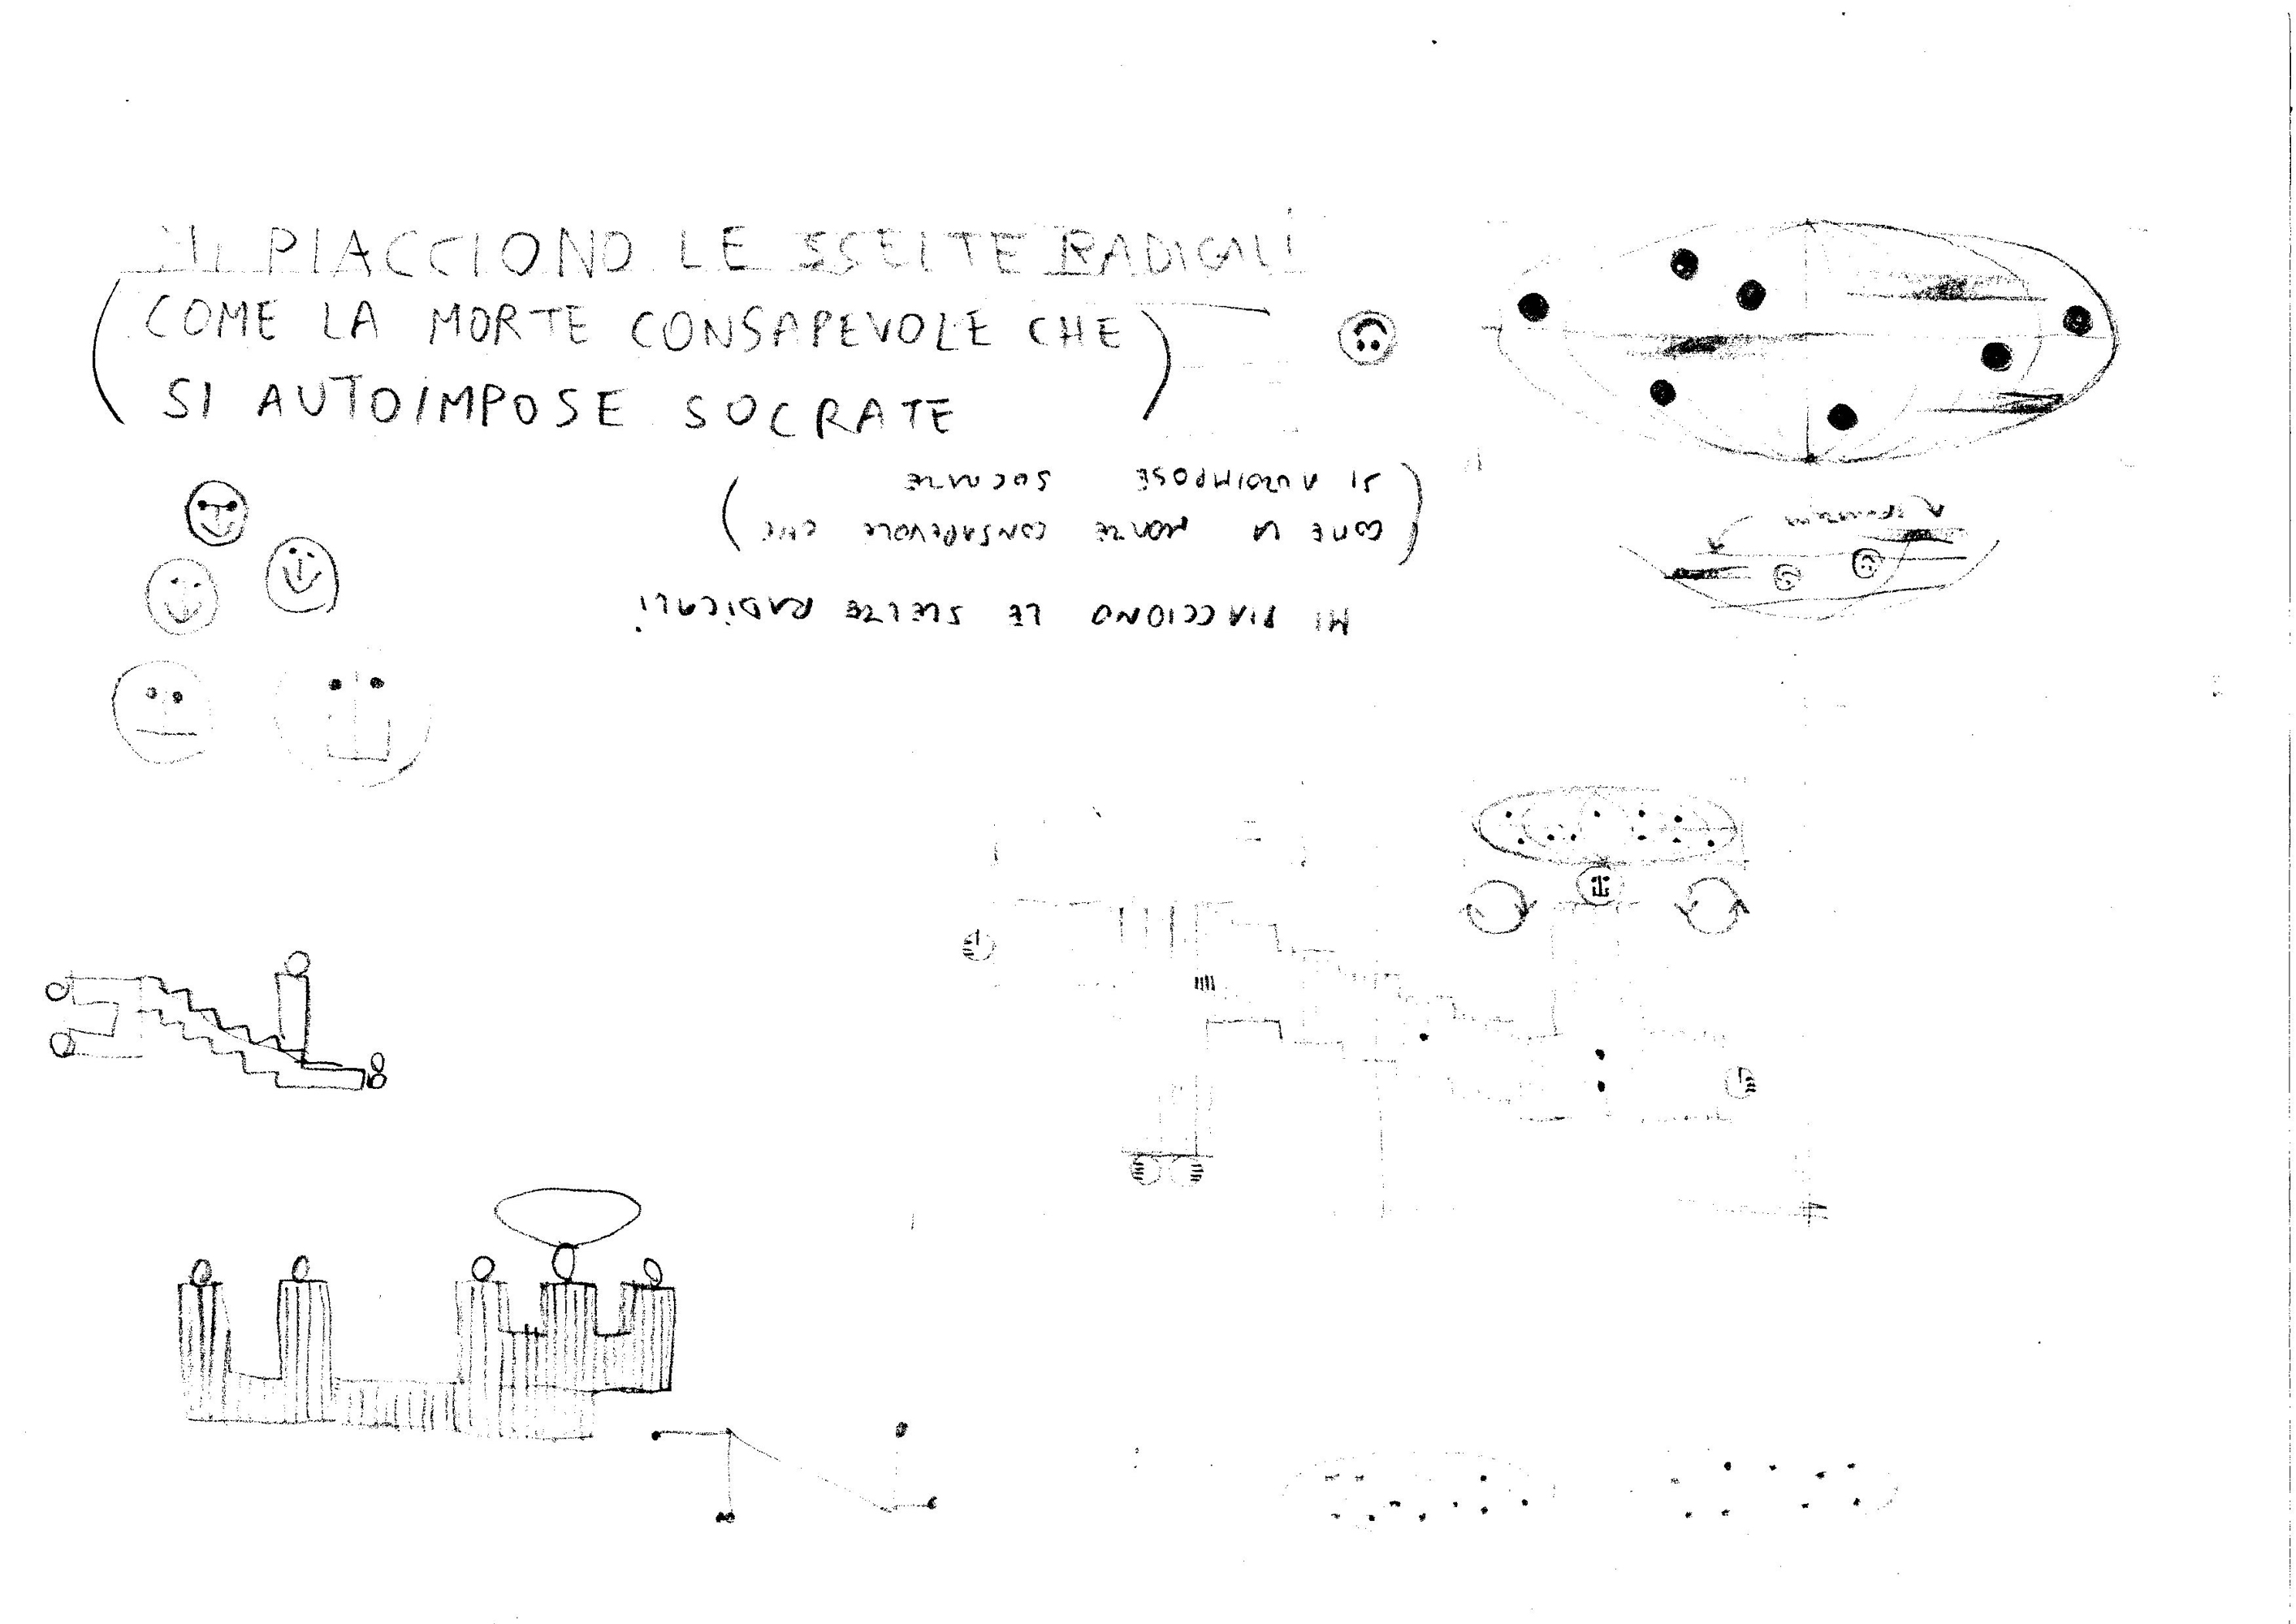 MI PIACCIONO LE SCELTE RADICALI
(COME LA MORTE CONSAPEVOLE CHE
SI AUTOIMPOSE SOCRATE)
MI PIACCIONO LE SCELTE RADICALI
(COME LA MORTE CONSAPEVOLE CHE
SI AUTOIMPOSE SOCRATE)